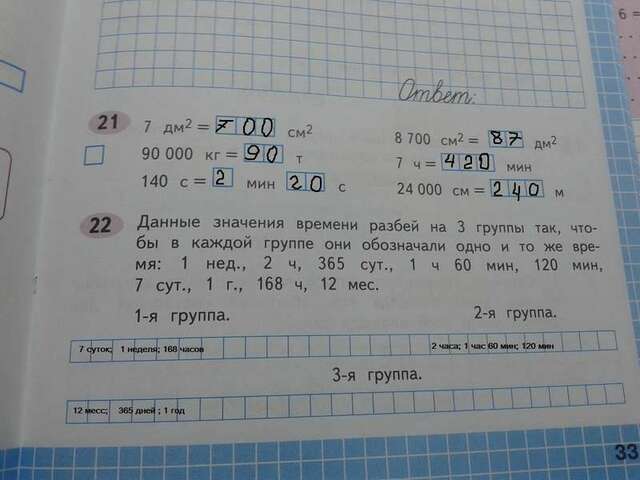 6 =
Ответ:
21 7 дм² = 700 см² 8 700 см² = 87 дм²
90 000 кг = 90 т 7 ч = 420 мин
140 с = 2 мин 20 с 24 000 см = 240 м
22 Данные значения времени разбей на 3 группы так, что-
бы в каждой группе они обозначали одно и то же вре-
мя: 1 нед., 2 ч, 365 сут., 1 ч 60 мин, 120 мин,
7 сут., 1 г., 168 ч, 12 мес.
1-я группа. 2-я группа.
7 суток; 1 неделя; 168 часов 2 часа; 1 час 60 мин; 120 мин
3-я группа.
12 месс; 365 дней ; 1 год
33